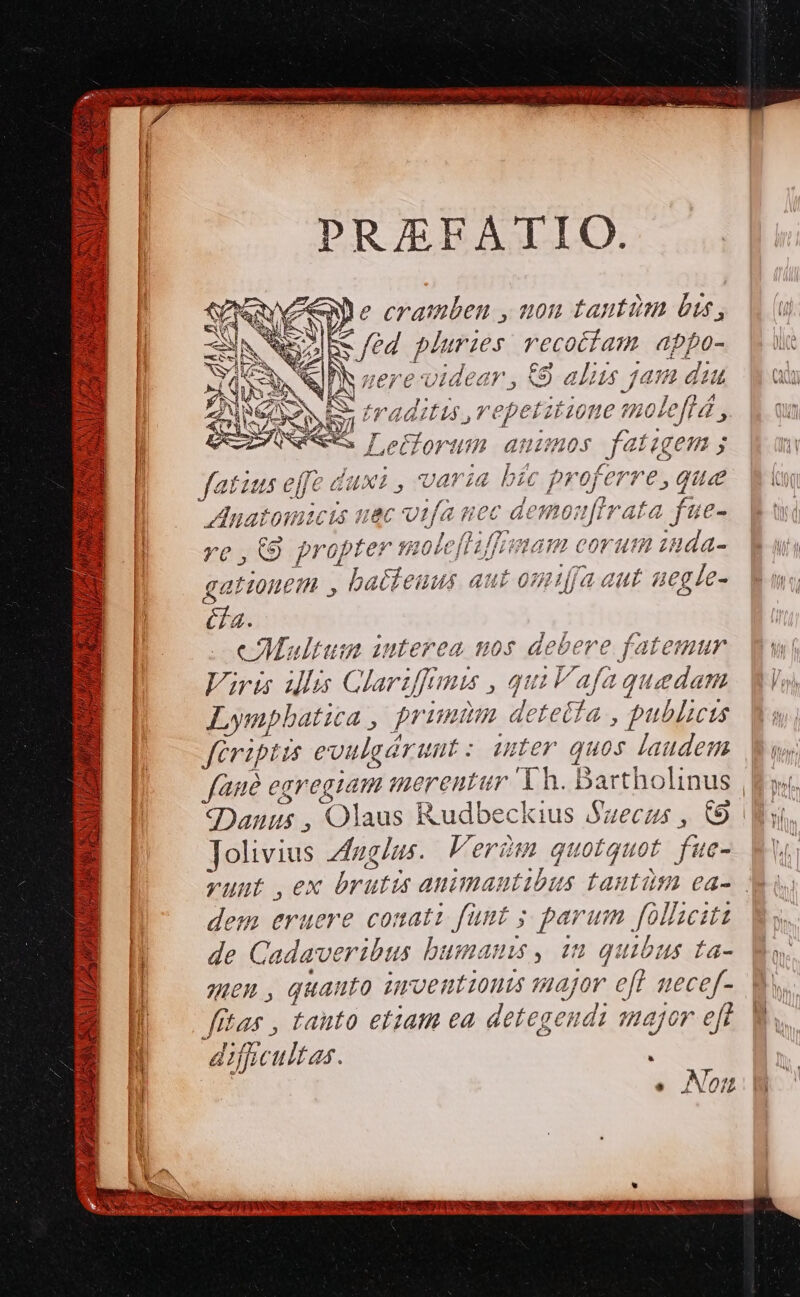 PRÆFATIO.
Ne cramben, non tantùm bis,
ſed pluries recoctam appo-
nere videar, & aliis jam diu
traditis, repetitione moleſtâ,
Lectorum animos fatigem;
ſatius eſſe duxi, varia hîc proferre, quæ
Anatomicis nec viſa nec demonſtrata fue-
re, & propter moleſtiſſimam eorum inda-
gationem, hactenus aut omiſſa aut negle-
cta.
Multum interea nos debere fatemur
Viris illis Clariſſimis, qui Vaſa quædam
Lymphatica, primùm detecta, publicis
ſcriptis evulgârunt: inter quos laudem
ſanè egregiam merentur Th. Bartholinus
Danus, Olaus Rudbeckius Suecus, &
Jolivius Anglus. Verùm quotquot fue-
runt, ex brutis animantibus tantùm ea-
dem eruere conati ſunt; parum ſolliciti
de Cadaveribus humanis, in quibus ta-
men, quanto inventionis major eſt neceſ-
ſitas, tanto etiam ea detegendi major eſt
difficultas.
Non